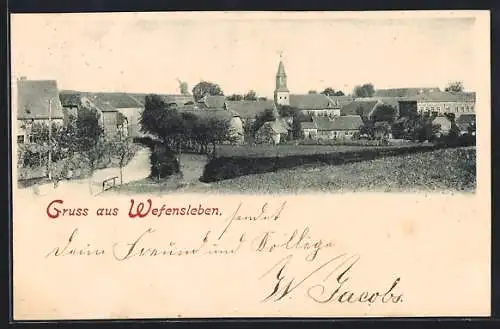 Gruss aus Wefensleben, sendet
dein Freund und College
W. Jacobs.